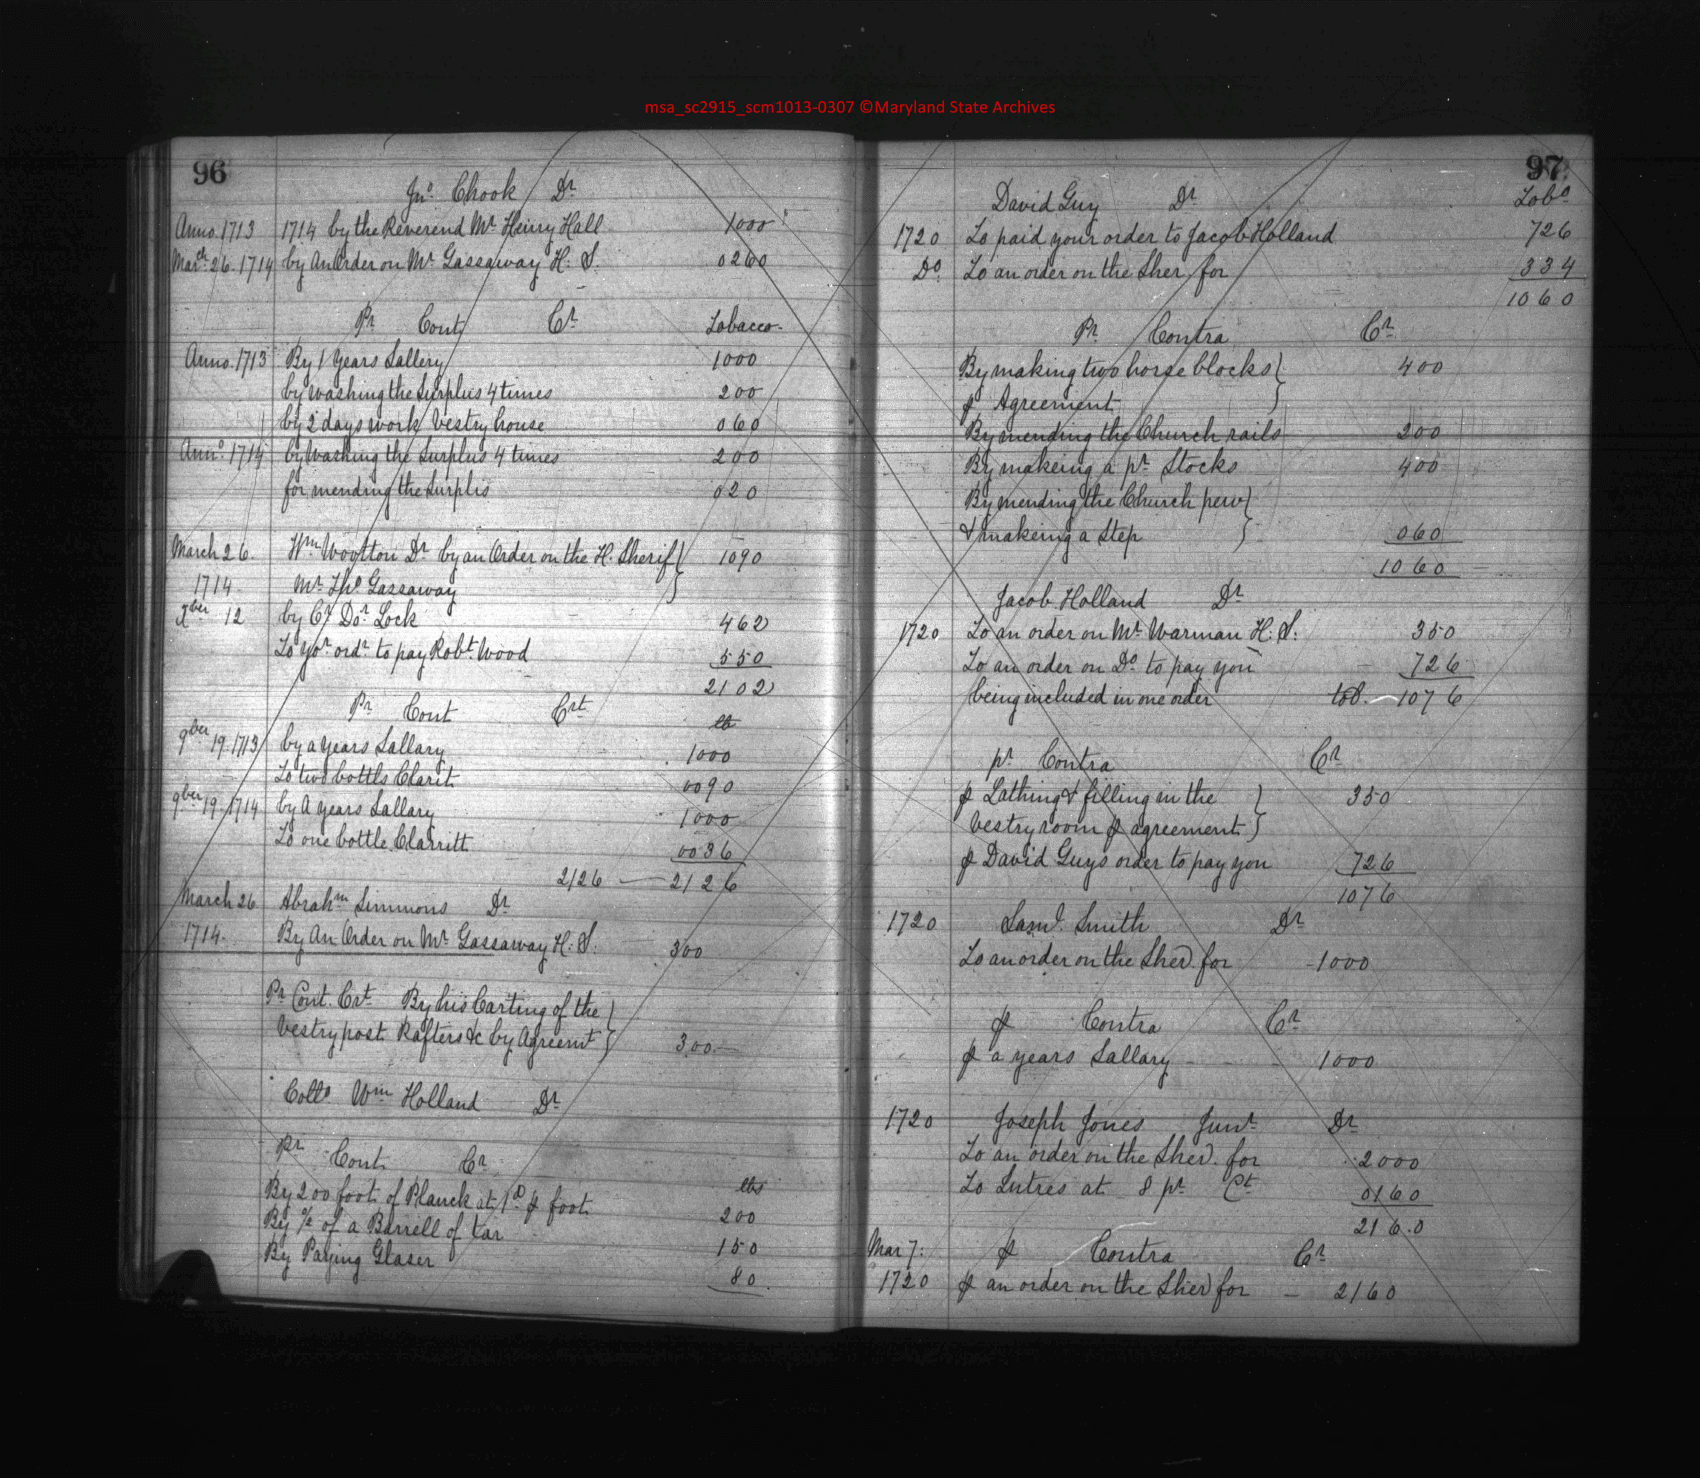 msa_sc2915_scm1013-0307 ©Maryland State Archives
96
Jno. Chook Dr
Anno. 1713 1714 by the Reverend Mr. Heniry Hall 1000
Marth. 26. 1714 by An Order on Mr. Gassaway H. S. 0260
Pr Cont Cr Tobacco.
Anno. 1713 By 1 Years Sallery 1000
by washing the Surplus 4 times 200
by 2 days work Vestry house 060
Anno. 1714 by Washing the Surplus 4 times 200
for mending the Surplis 020
March 26. Wm Wootton Dr by an Order on the H. Sherif 1090
1714 Mr. Tho Gassaway
Xber 12 by Cr Dor. Lock 462
To yor. ordr. to pay Robt. Wood 550
2102
Pr Cont Crt lb
9ber 19. 1713 by a years Sallary 1000
To two bottls Clarit 0090
9ber 19. 1714 by A years Sallary 1000
To one bottle Clarritt 0036
2126 — 2126
March 26 Abrahm Simmons Dr
1714. By An Order on Mr. Gassaway H. S. 300
Pr Cont. Crt. By his Carting of the
Vestry post Rafters &c by Agreemt 300—
Collo Wm Holland Dr
Pr Cont. Cr
lbs
By 200 foot of Planck at 1D ⅌ foot 200
By ½ of a Barrell of tar 150
By Paying Glaser 80
97
David Guy Dr Tobo
1720 To paid your order to Jacob Holland 726
Do To an order on the Sher for 334
1060
Pr Contra Cr
By making two horse blocks 400
⅌ Agreement
By mending the Church rails 200
By makeing a pr. Stocks 400
By mending the Church pew
& makeing a Step 060
1060
Jacob Holland Dr
1720 To an order on Mr. Warman H. S. 350
To an order on Do to pay you 726
being included in one order tob. 1076
pr Contra Cr
⅌ Lathing & filling in the 350
Vestry room ⅌ agreement
⅌ David Guys order to pay you 726
1076
1720 Saml. Smith Dr
To an order on the Sher. for -1000
⅌ Contra Cr
⅌ a years Sallary - - - 1000
1720 Joseph Jones Junr. Dr
To an order on the Sher. for 2000
To Intres at 8 pr Ct 0160
2160
Mar 7: ⅌ Contra Cr
1720 ⅌ an order on the Sher for — 2160